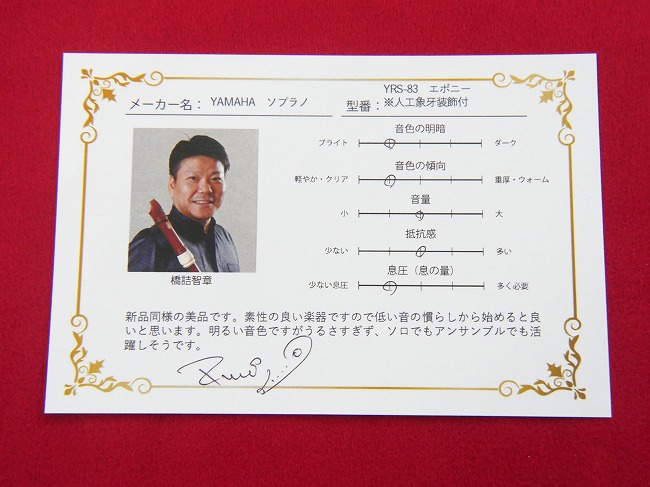 YRS-83 エボニー
メーカー名: YAMAHA ソプラノ 型番: ※人工象牙装飾付
音色の明暗
ブライト ダーク
音色の傾向
軽やか・クリア 重厚・ウォーム
音量
小 大
抵抗感
少ない 多い
息圧（息の量）
少ない息圧 多く必要
橋詰智章
新品同様の美品です。素性の良い楽器ですので低い音の慣らしから始めると良
いと思います。明るい音色ですがうるさすぎず、ソロでもアンサンブルでも活
躍しそうです。